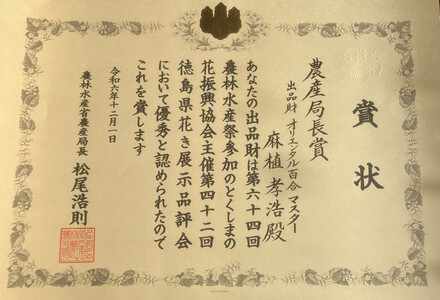 賞状
農産局長賞
出品財 オリエンタル百合 マスター
麻植孝浩殿
あなたの出品財は第六十四回
農林水産祭参加のとくしまの
花振興協会主催第四十二回
徳島県花き展示品評会
において優秀と認められたので
これを賞します
令和六年十二月一日
農林水産省農産局長 松尾浩則